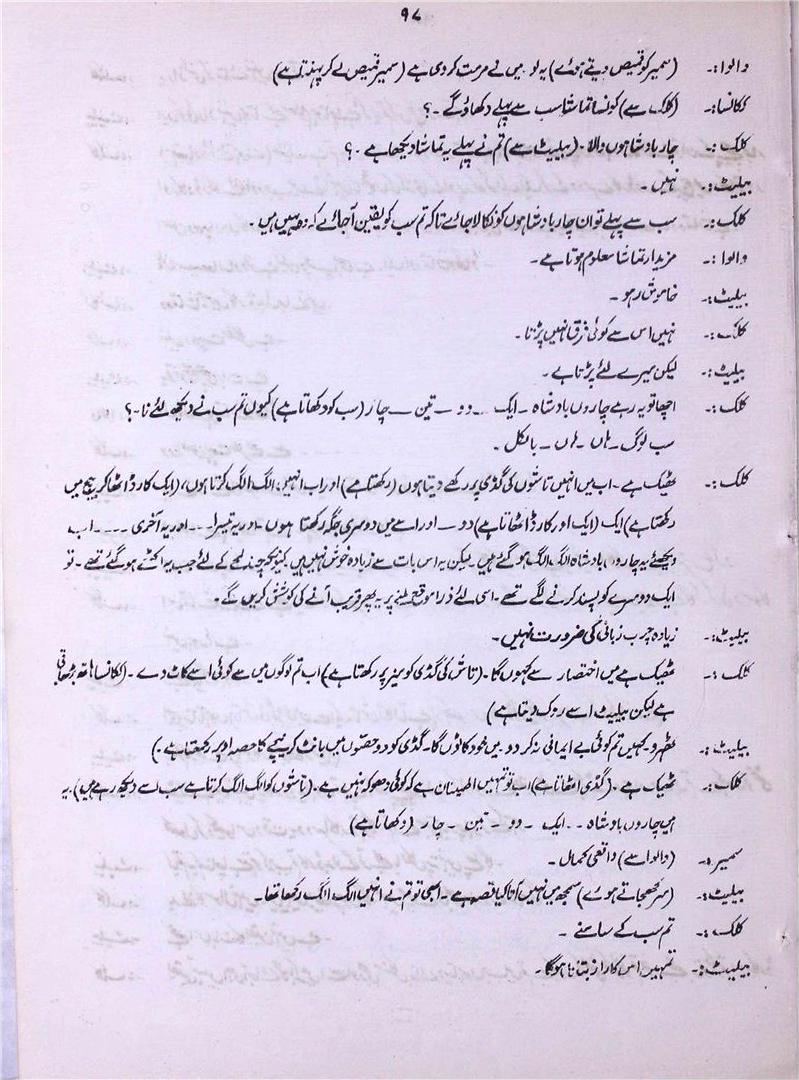 ۹۷
والوا:۔ (سمیر کو قمیص دیتے ہوئے) یہ لو۔ میں نے مرمت کر دی ہے (سمیر قمیص لے کر پہنتا ہے)
لکانسا:۔ (کلک سے) کونسا تماشا سب سے پہلے دکھاؤ گے۔؟
کلک:۔ چار بادشاہوں والا۔ (بیلیٹ سے) تم نے پہلے یہ تماشا دیکھا ہے۔؟
بیلیٹ:۔ نہیں۔
کلک:۔ سب سے پہلے تو ان چار بادشاہوں کو نکالا جائے تاکہ تم سب کو یقین آجائے کہ وہ یہیں ہیں۔
والوا:۔ مزیدار تماشا معلوم ہوتا ہے۔
بیلیٹ:۔ خاموش رہو۔
کلک:۔ نہیں اس سے کوئی فرق نہیں پڑتا۔
بیلیٹ:۔ لیکن میرے لئے پڑتا ہے۔
کلک:۔ اچھا تو یہ رہے چاروں بادشاہ۔ ایک ۔۔ دو ۔ تین ۔۔ چار (سب کو دکھاتا ہے) کیوں تم سب نے دیکھ لئے نا۔؟
سب لوگ۔ ہاں۔ ہاں۔ بالکل۔
کلک:۔ ٹھیک ہے۔ اب میں انہیں تاشوں کی گڈی پر رکھے دیتا ہوں (رکھتا ہے) اور اب انہیں الگ الگ کرتا ہوں، (ایک کارڈ اٹھا کر بیچ میں
رکھتا ہے) ایک (ایک اور کارڈ اٹھاتا ہے) دو ۔ اور اسے میں دوسری جگہ رکھتا ہوں۔ اور یہ تیسرا۔۔۔ اور یہ آخری ۔۔۔۔ اب
دیکھئے یہ چاروں بادشاہ الگ الگ ہو گئے ہیں۔ لیکن یہ اس بات سے زیادہ خوش نہیں ہیں کیونکہ چند لمحے کے لئے جب یہ اکٹھے ہو گئے تھے۔ تو
ایک دوسرے کو پسند کرنے لگے تھے۔ اسی لئے ذرا موقع ملنے پر یہ پھر قریب آنے کی کوشش کریں گے۔
بیلیٹ:۔ زیادہ چرب زبانی کی ضرورت نہیں۔
کلک:۔ ٹھیک ہے میں اختصار سے کہوں گا۔ (تاش کی گڈی کو میز پر رکھتا ہے) اب تم لوگوں میں سے کوئی اسے کاٹ دے۔ (لکانسا ہاتھ بڑھاتی
ہے لیکن بیلیٹ اسے روک دیتا ہے)
بیلیٹ:۔ ٹھہرو۔ کہیں تم کوئی بے ایمانی نہ کر دو۔ میں خود کاٹوں گا۔ گڈی کو دو حصّوں میں بانٹ کر نیچے کا حصہ اوپر رکھتا ہے۔)
کلک:۔ ٹھیک ہے۔ (گڈی اٹھاتا ہے) اب تو تمہیں اطمینان ہے کہ کوئی دھوکہ نہیں ہے۔ (تاشوں کو الگ الگ کرتا ہے سب اسے دیکھ رہے ہیں)۔ یہ
ہیں چاروں بادشاہ ۔۔ ایک ۔ دو ۔ تین ۔ چار (دکھاتا ہے)
سمیر:۔ (والوا سے) واقعی کمال۔
بیلیٹ:۔ (سر کھجاتے ہوئے) سمجھ میں نہیں آتا کیا قصہ ہے۔ ابھی تو تم نے انہیں الگ الگ رکھا تھا۔
کلک:۔ تم سب کے سامنے۔
بیلیٹ:۔ تمہیں اس کا راز بتانا ہوگا۔